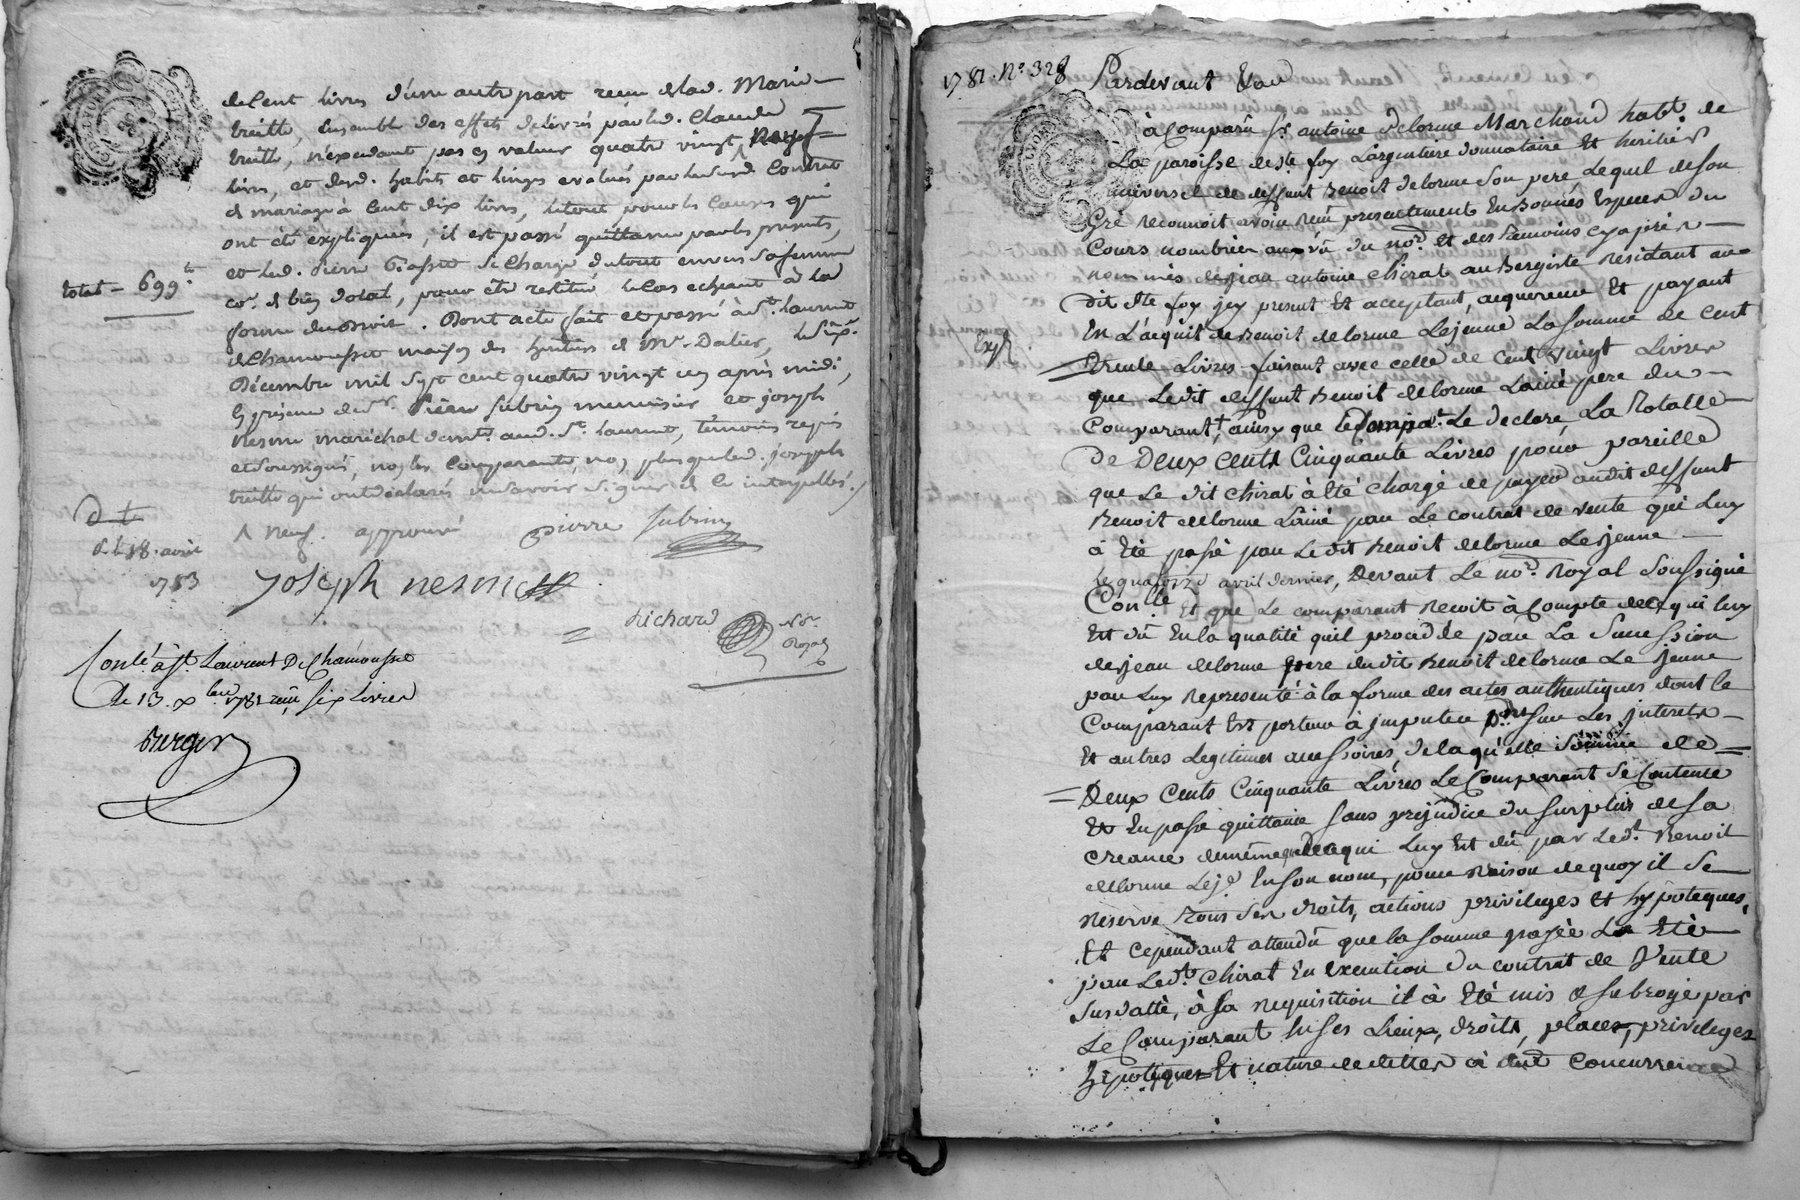 de Cent livres d'une autre part reçu de lad. Marie
truitte, Ensemble des effets delivrés par led. Claude
truitte, n'excedant pas en valeur quatre vingt
livres, et desd. habits et linges evalués par led. Contrat
de mariage à Cent dix livres, le tout pour les Causes qui
ont été expliquées, il est passé quittance par les presents,
et led. Pierre se charge du tout envers sa femme
de bien dotal, pour etre restitué le cas echeant à la
forme du Droit. Dont acte fait et passé à St. Laurent
de Chamousset maison des heritiers de Mr. Dalier, le
Décembre mil sept cent quatre vingt un après midi,
En présence de Sr. Pierre Subrin menuisier et joseph
nesme maréchal demt. aud. St. Laurent, temoins requis
et soussignés, non les Comparants, non plus que led. joseph
truitte qui ont déclarés ne savoir signer de ce interpellés.
total = 699 lt
neuf. approuvé pierre Subrin
d t
18. avril
1783
Joseph nesme
Richard Nre.
Royal
Conlé. à St. Laurent De Chamousset
Le 13. xbre 1781 reçu six Livres
Berger
1781. N° 328
Pardevant
à Comparu Sr. antoine delorme Marchand habt. de
La paroisse de Ste. foy L'argentiere donnataire Et heritier
universel de deffunt Benoit delorme Son pere Lequel de Son
Gré reconnoit avoir reçu presentement En Bonnes Especes du
Cours nombrées au vu du nore. Et des temoins cy après
nommés de jean antoine Chirat aubergiste residant au
dit Ste foy jcy present Et acceptant, acquereur Et payant
En L'acquit de Benoit delorme Lejeune La somme de cent
Expé.
Trente Livres faisant avec celle de Cent vingt Livres
que Ledit deffunt Benoit delorme Lainé pere du
Comparant, ainsy que le Compart. Le declare, La totalle
de Deux cents Cinquante Livres pour pareille
que Le dit chirat à Eté chargé de payer audit deffunt
Benoit delorme L'ainé par Le contrat de vente qui Luy
à Eté passé par Le dit Benoit delorme Lejeune
le quatorze avril dernier, Devant Le nore. Royal Soussigné
Conlle. Et que Le comparant Recoit à Compte de ce qui luy
Est dû En la qualité qu'il procède par La Succession
de jean delorme pere du dit Benoit delorme Le jeune
par Luy Representé à la forme des actes authentiques dont le
Comparant Est porteur à imputer sur Les jnterets
Et autres Legitimes accessoires, de laquelle Somme de
Deux Cents Cinquante Livres Le Comparant Se Contente
Et En passe quittance Sans prejudice du Surplus de Sa
creance de même que de ce qui Luy Est dû par Led. Benoit
delorme Leje. En son nom, pour Raison de quoy il Se
Reserve Tous Ses droits, actions privileges Et hypoteques,
Et cependant attendu que la Somme payée La Eté
par Led. Chirat En execution du contrat de Vente
Susdatté, à Sa Requisition il à Eté mis & subrogé par
Le Comparant En ses Lieux, droits, places, privileges
hipoteques Et nature de dettes à due Concurrence